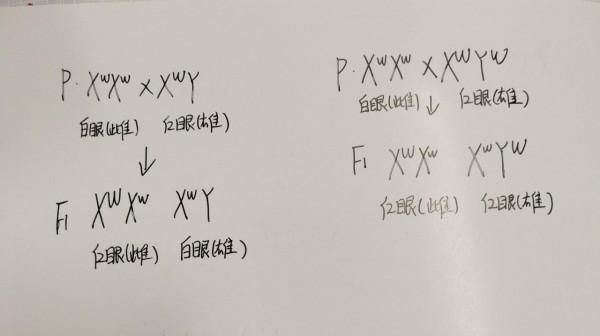 P. XʷXʷ × XᵂY
白眼(雌) 红眼(雄)
↓
F₁ XᵂXʷ XʷY
红眼(雌) 白眼(雄)
P. XʷXʷ × XᵂYᵂ
白眼(雌) ↓ 红眼(雄)
F₁ XᵂXʷ XʷYᵂ
红眼(雌) 红眼(雄)